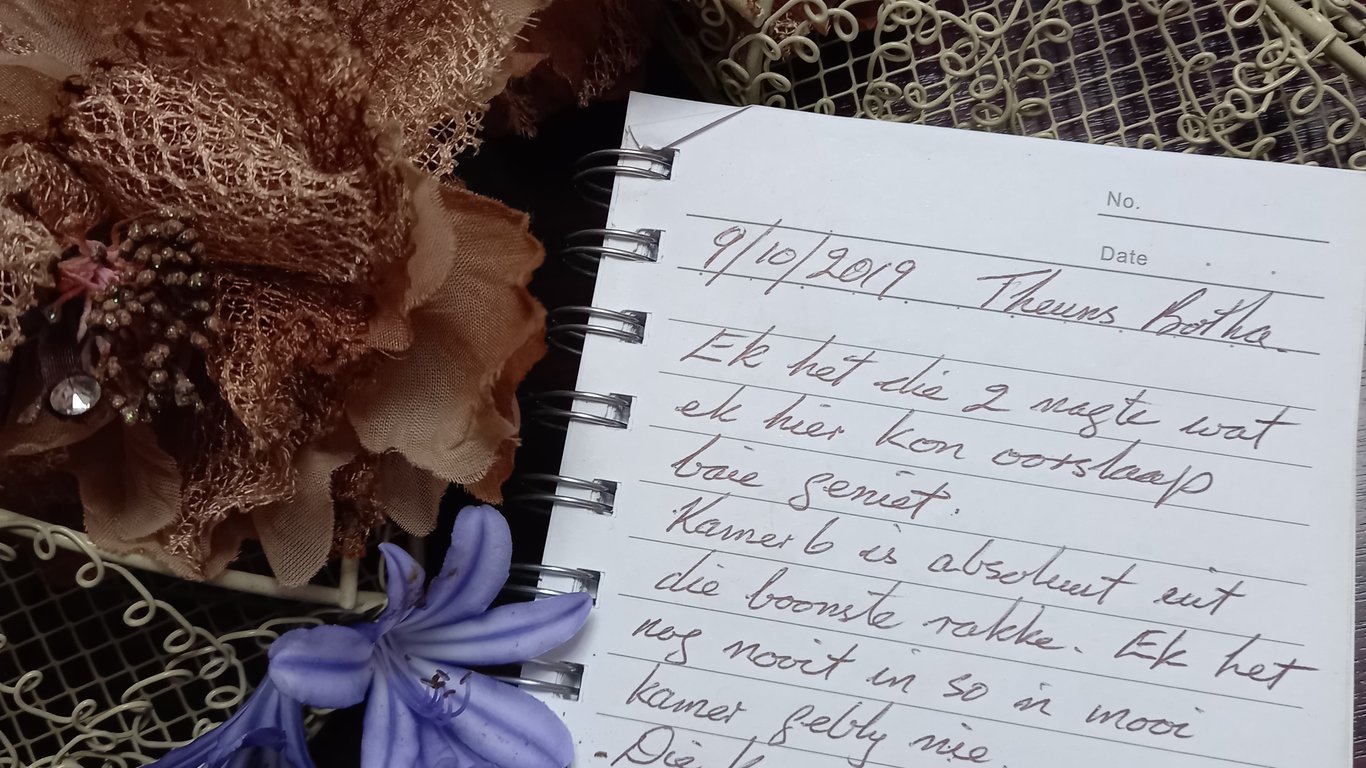 No.
Date
9/10/2019 Theuns Botha.
Ek het die 2 nagte wat
ek hier kon oorslaap
baie geniet.
Kamer 6 is absoluut uit
die boonste rakke. Ek het
nog nooit in so 'n mooi
kamer gebly nie.
Die